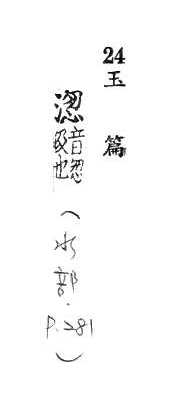 24玉篇
淴音忽也(水部.P.281)